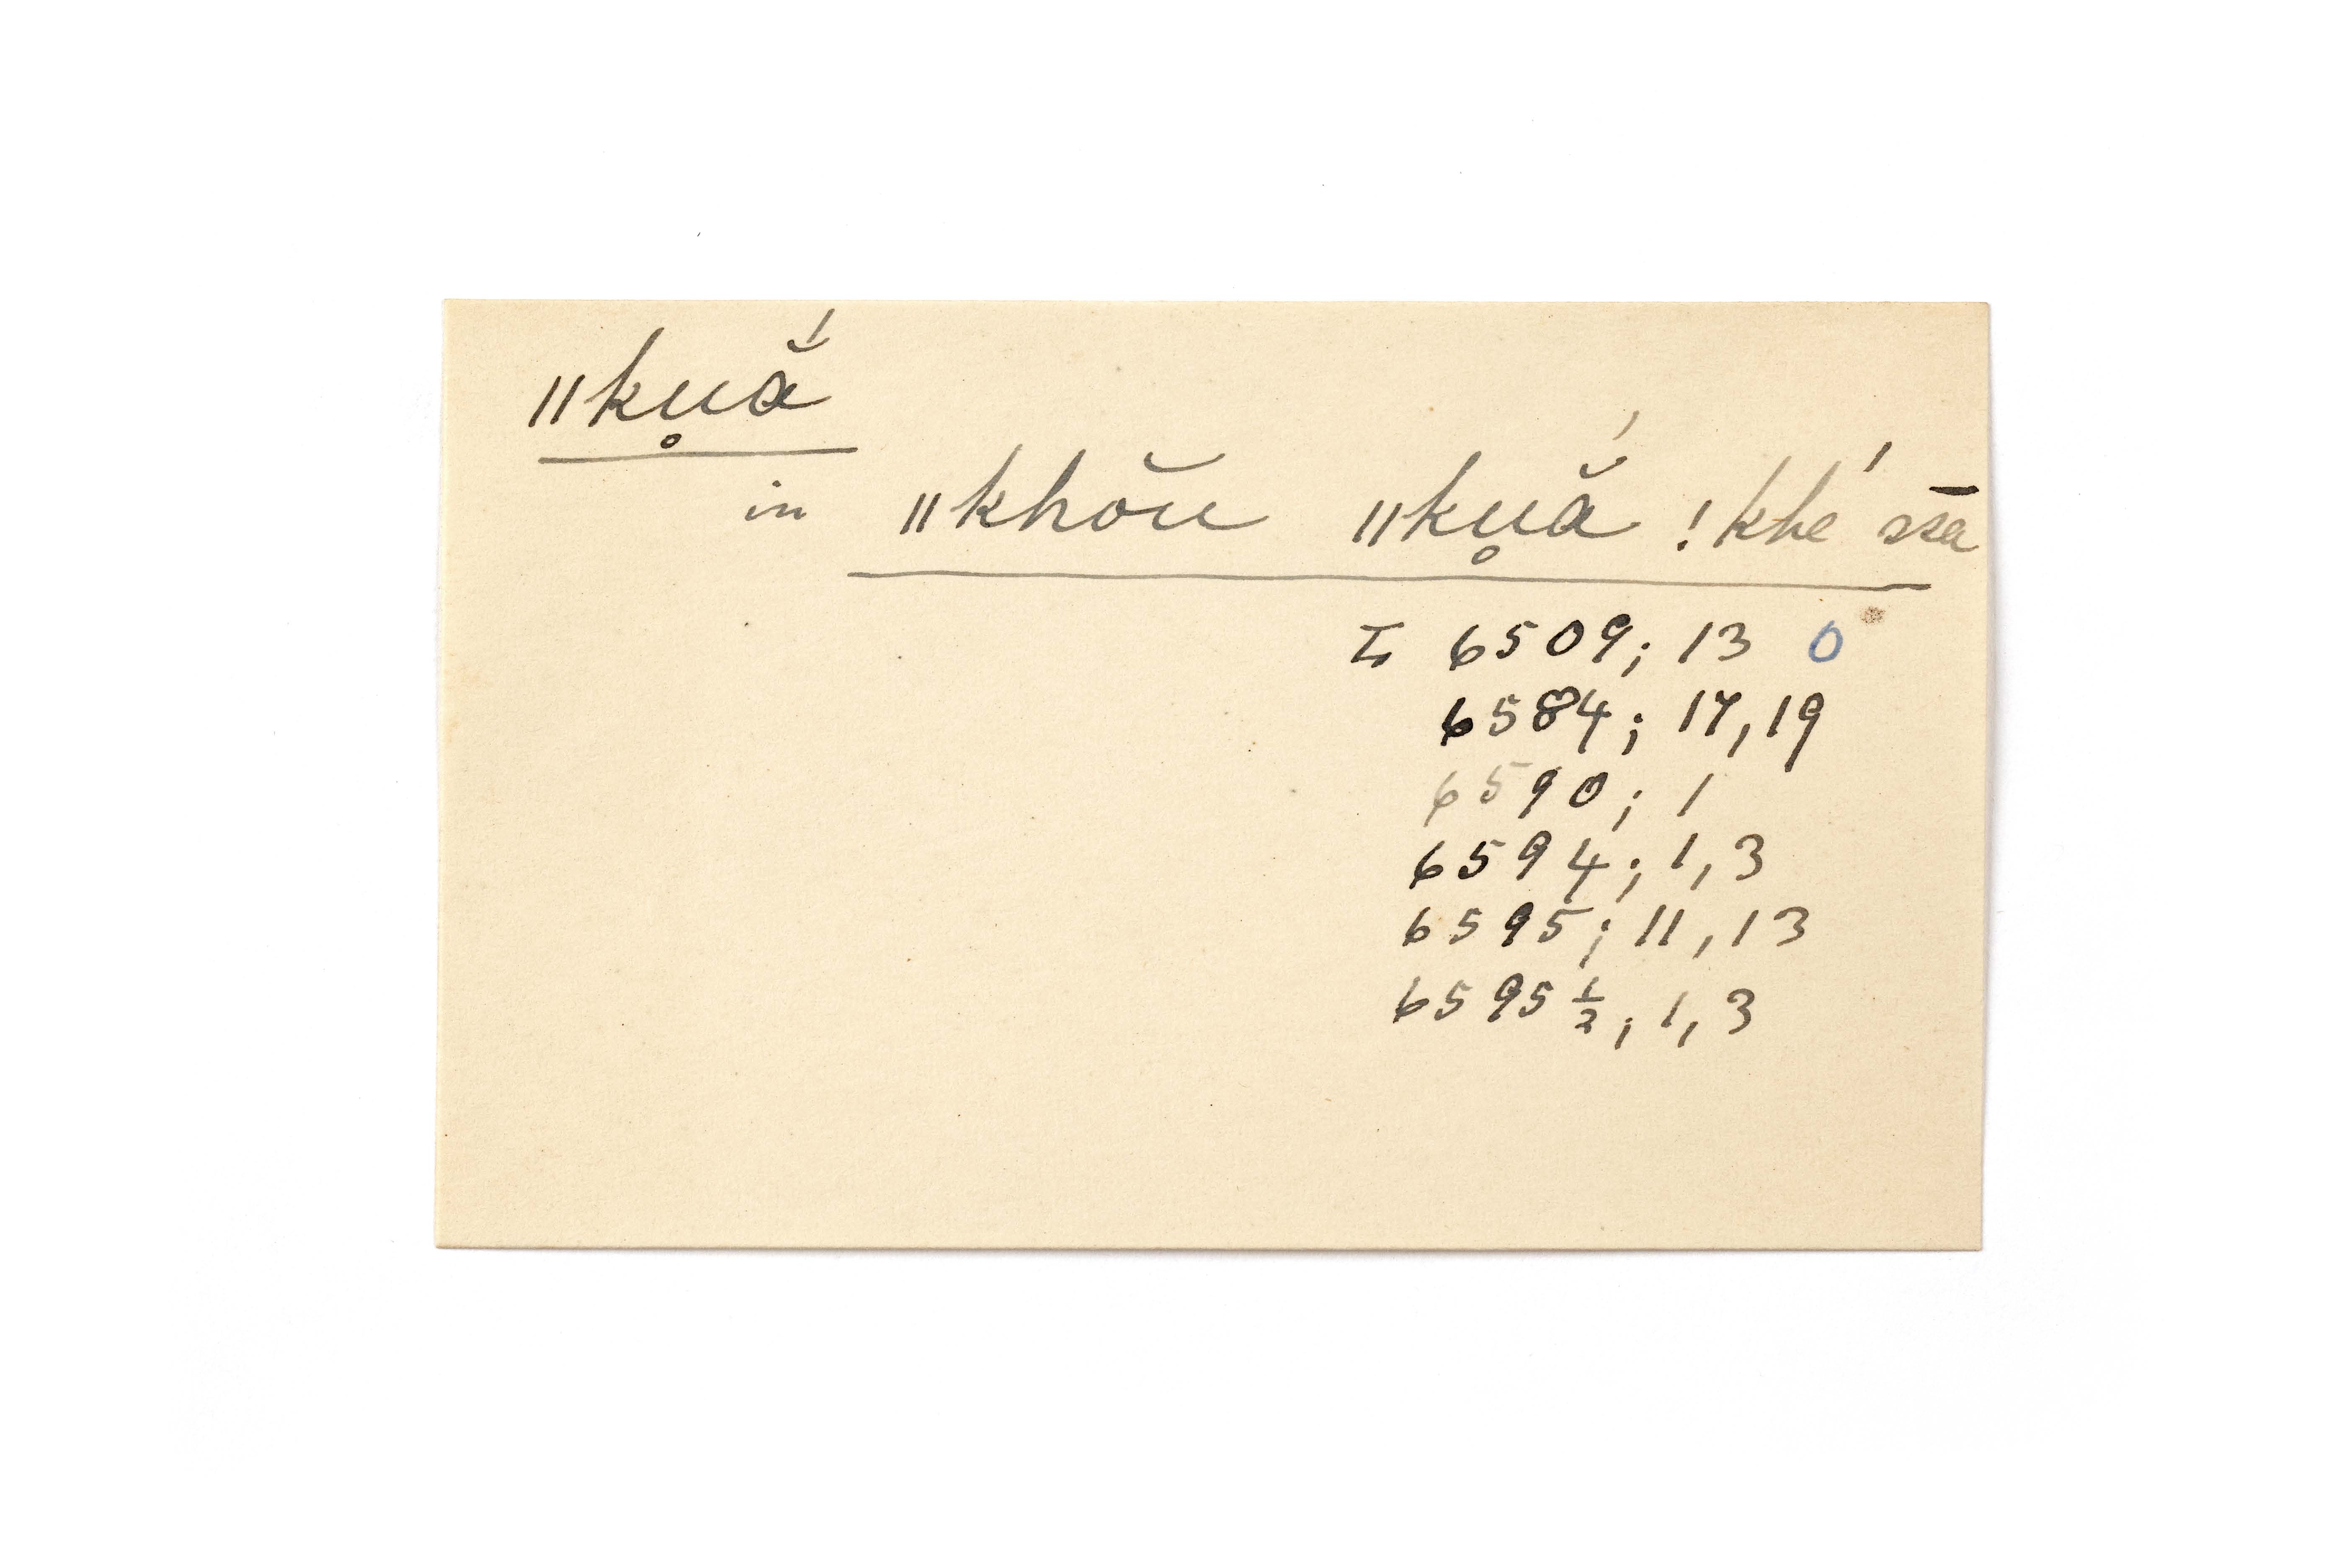 ǁku̥ắ
in ǁkhŏu ǁku̥ắ !khé ssa̅
L 6509; 13 0
6584; 17, 19
6590; 1
6594; 1, 3
6595; 11, 13
6595 ½; 1, 3